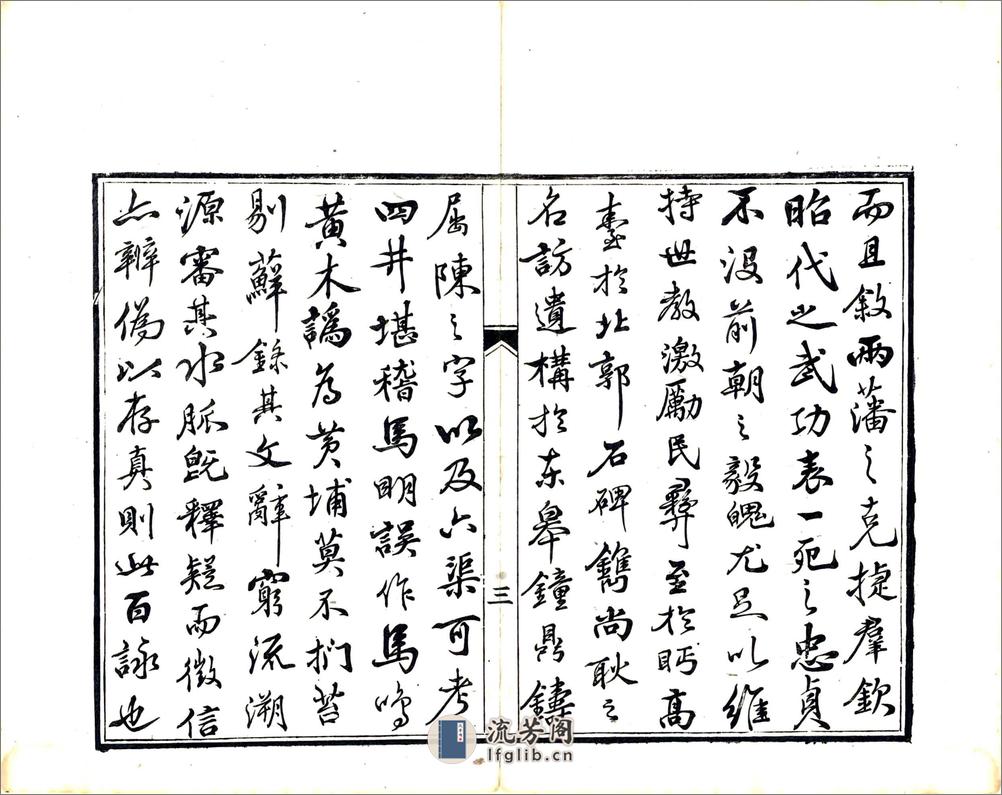 而且敘兩藩之克捷羣欽
昭代之武功表一死之忠貞
不沒前朝之毅魄尤足以維
持世教激勵民彝至於眄高
臺於北郭石碑鐫尚耿之
名訪遺構於東皋鐘鼎鑄
三
屈陳之字以及六渠可考
四井堪稽馬明誤作馬鳴
黃木譌為黃埔莫不捫苔
剔蘚錄其文辭窮流溯
源審其水脈既釋疑而徵信
亦辨偽以存真則此百詠也
流芳阁
lfglib.cn